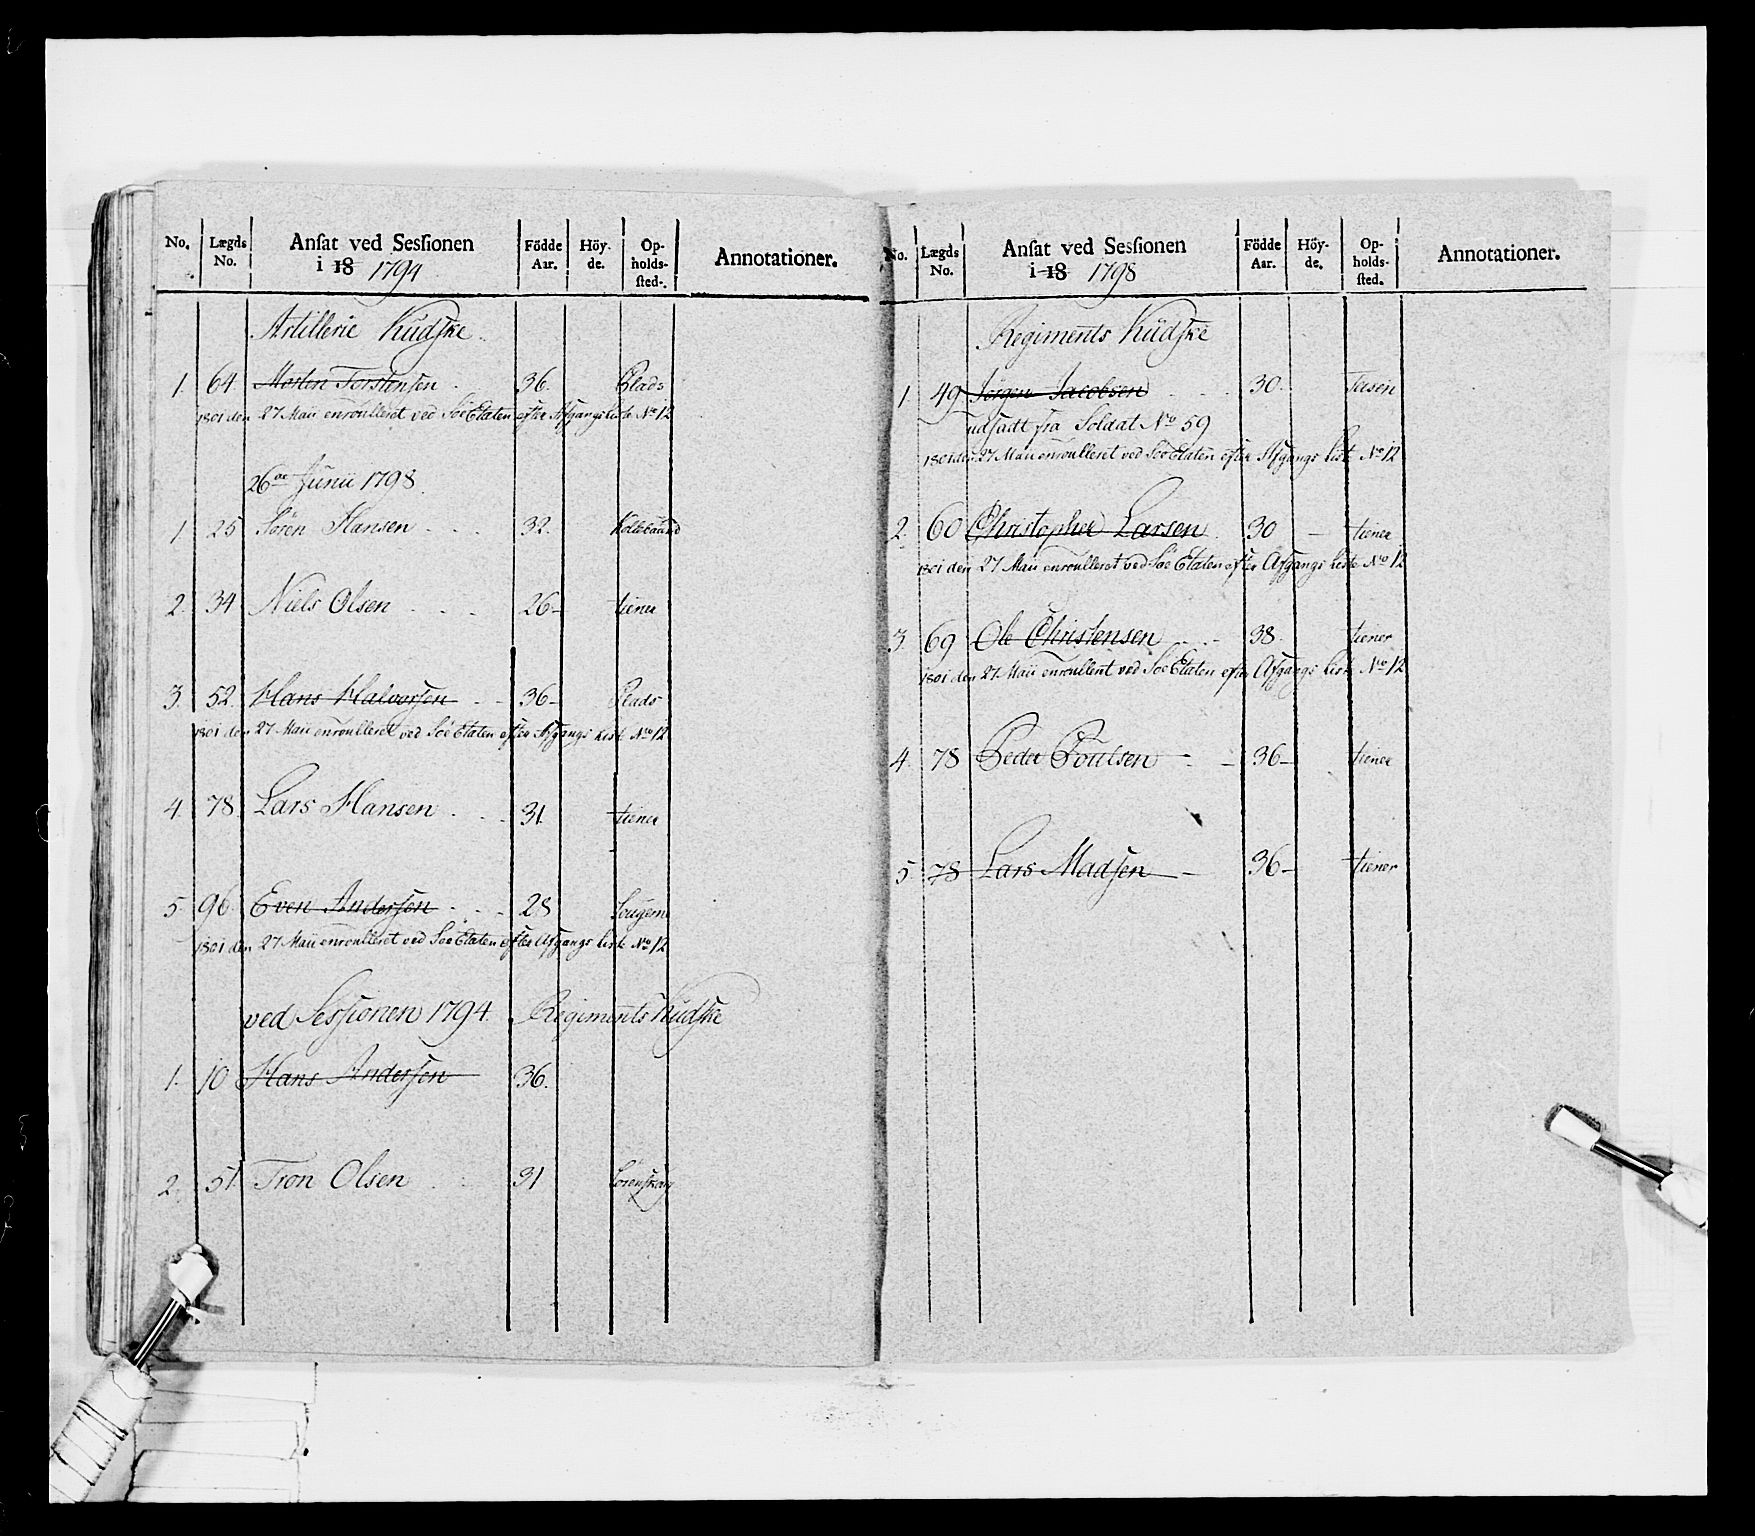 No. Lægds No. Ansat ved Sessionen i 18 1794 Födde Aar. Höyde. Opholds-sted. Annotationer.
Artillerie Kudske
1. 64 Morten Torstensen 36. Plads
1801 den 27 Maii enroulleret ved Söe Etaten efter Afgangs Liste No 12
26de Junii 1798
1 25 Sören Hansen 32.
2. 34 Niels Olsen 26 tiener
3. 52. Hans Halvorsen 36 Plads
1801 den 27 Maii enroulleret ved Söe Etaten efter Afgangs Liste No 12
4. 78 Lars Hansen 31 tiener
5. 96. Even Andersen 28
1801 den 27 Maii enroulleret ved Söe Etaten efter Afgangs Liste No 12
ved Sessionen 1794. Regiments Kudske
1. 10 Hans Andersen 36.
2. 51 Tron Olsen 31
No. Lægds No. Ansat ved Sessionen i 18 1798 Födde Aar. Höyde. Opholds-sted. Annotationer.
Regiments Kudske
1 49 Jörgen Jacobsen 30
udsadt fra Soldat No 59
1801 den 27 Maii enroulleret ved Söe Etaten efter Afgangs List No 12
2. 60 Christopher Larsen 30 tiener
1801 den 27 Maii enroulleret ved Söe Etaten efter Afgangs Liste No 12
3. 69 Ole Christensen 38 tiener
1801 den 27 Maii enroullert ved Söe Etaten efter Afgangs Liste No 12
4. 78 Peder Poulsen 36 tiener
5 78 Lars Madsen 36 tiener